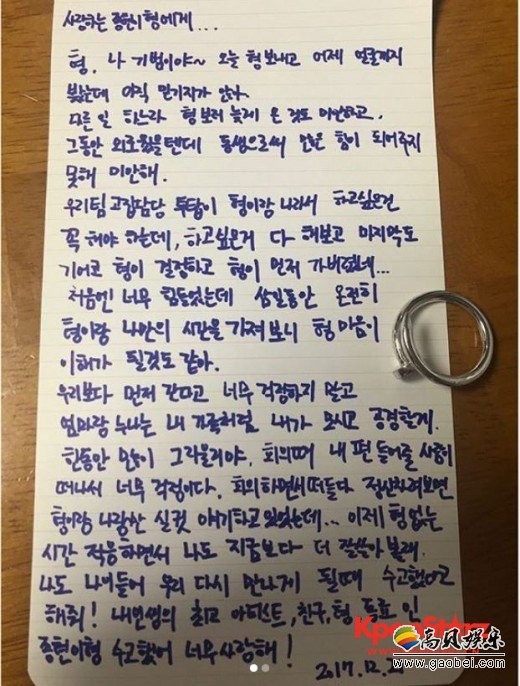 사랑하는 종현이형에게...
형, 나 기범이야~ 오늘 형 보내고 어제 얼굴까지
봤는데 아직 믿기지가 않다.
다른 일 하느라 형 보러 늦게 온 것도 미안하고,
그동안 외로웠을텐데 동생으로써 많은 힘이 되어주지
못해 미안해.
우리팀 고집담당 투탑이 형이랑 나라서 하고싶은건
꼭 해야 하는데, 하고싶은거 다 해보고 마지막도
기어코 형이 결정하고 형이 먼저 가버렸네...
처음엔 너무 힘들었는데 삼일동안 온전히
형이랑 나만의 시간을 가져보니 형 마음이
이해가 될것도 같아.
우리보다 먼저 간다고 너무 걱정하지 말고
엄마랑 누나는 내 가족처럼 내가 모시고 공경할게.
한동안 많이 그리울거야. 회의때 내 편 들어줄 사람이
떠나서 너무 걱정이다. 회의하면서 떠들다 정신차려보면
형이랑 나랑만 실컷 얘기하고 있었는데.. 이제 형 없는
시간 적응하면서 나도 지금보다 더 잘 해볼래.
나도 나이들어 우리 다시 만나게 될때 수고했다고
해줘! 내 인생의 최고 아티스트, 친구, 형, 동료 인
종현이형 수고했어 너무 사랑해!
2017.12.21
KpopStarz
高贝娱乐
www.gaobei.com